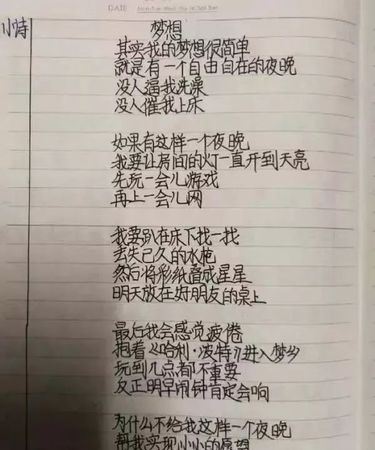 DATE
小诗
梦想
其实我的梦想很简单
就是有一个自由自在的夜晚
没人逼我洗澡
没人催我上床
如果有这样一个夜晚
我要让房间的灯一直开到天亮
先玩一会儿游戏
再上一会儿网
我要趴在床下找一找
丢失已久的水枪
然后将彩纸叠成星星
明天放在好朋友的桌上
最后我会感觉疲倦
抱着《哈利·波特》进入梦乡
玩到几点都不重要
反正明早闹钟肯定会响
为什么不给我这样一个夜晚
帮我实现小小的愿望